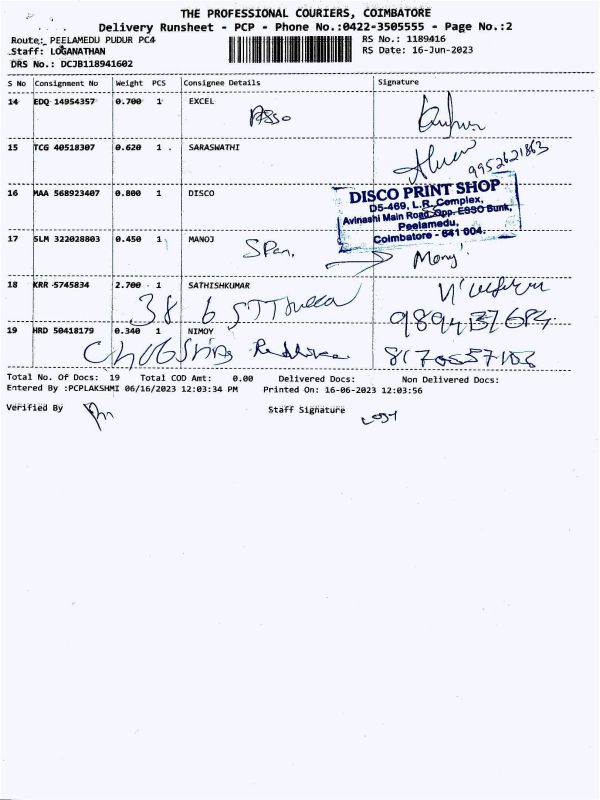 THE PROFESSIONAL COURIERS, COIMBATORE
Delivery Runsheet - PCP - Phone No.:0422-3505555 - Page No.:2
Route: PEELAMEDU PUDUR PC4 RS No.: 1189416
Staff: LOGANATHAN RS Date: 16-Jun-2023
DRS No.: DCJB118941602
S No Consignment No Weight PCS Consignee Details Signature
14 EDQ 14954357 0.700 1 EXCEL
15 TCG 40518307 0.620 1 . SARASWATHI
9952621863
16 MAA 568923407 0.800 1 DISCO
DISCO PRINT SHOP
D5-469, L.R. Complex,
Avinashi Main Road, Opp. ESSO Bunk,
Peelamedu,
Coimbatore - 641 004.
17 SLM 322028803 0.450 1 MANOJ
18 KRR 5745834 2.700 1 SATHISHKUMAR
38 6
19 HRD 50418179 0.340 1 NIMOY
Total No. Of Docs: 19 Total COD Amt: 0.00 Delivered Docs: Non Delivered Docs:
Entered By :PCPLAKSHMI 06/16/2023 12:03:34 PM Printed On: 16-06-2023 12:03:56
Verified By Staff Signature